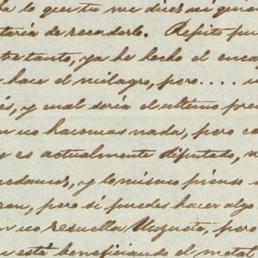 lo que tu me dices ni qui
taria de recordarlo. Repito que
tanto, ya he hecho el enca
hace el milagro, pero....
es, y cual seria el ultimo prec
no hacemos nada, pero co
y es actualmente diputado,
y lo mismo pienso
pero si puedes hacer algo
no resuelva Augusto, pero
está beneficiando el metal